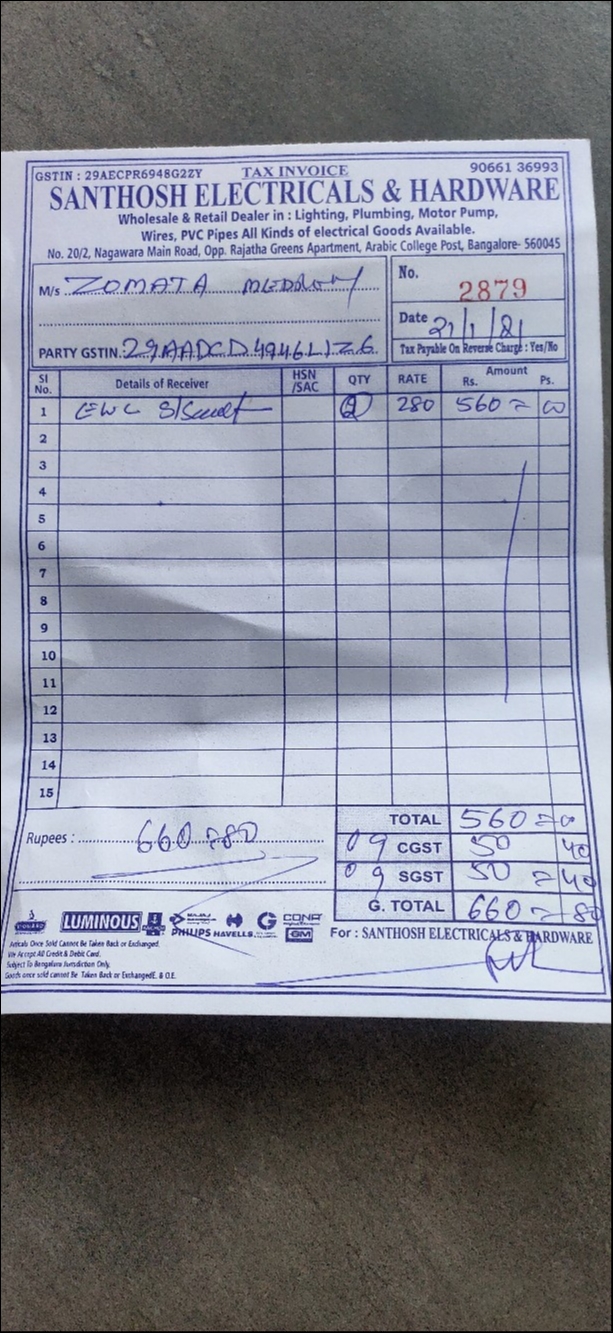 GSTIN : 29AECPR6948G2ZY TAX INVOICE 90661 36993
SANTHOSH ELECTRICALS & HARDWARE
Wholesale & Retail Dealer in : Lighting, Plumbing, Motor Pump,
Wires, PVC Pipes All Kinds of electrical Goods Available.
No. 20/2, Nagawara Main Road, Opp. Rajatha Greens Apartment, Arabic College Post, Bangalore- 560045
M/s ZOMATA
No. 2879
Date 21/1/21
PARTY GSTIN. 29AADCD4946L1Z6
Tax Payable On Reverse Charge : Yes/No
Sl No. Details of Receiver HSN /SAC QTY RATE Amount Rs. Ps.
1 EWC 2 280 560 = 00
2
3
4
5
6
7
8
9
10
11
12
13
14
15
TOTAL 560 = 00
Rupees : 660 = 80
09 CGST 50 40
09 SGST 50 = 40
G. TOTAL 660 = 80
LUMINOUS PHILIPS HAVELLS CONA GM
For : SANTHOSH ELECTRICALS & HARDWARE
Articals Once Sold Cannot Be Taken Back or Exchanged.
We Accept All Credit & Debit Card.
Subject To Bangaluru Jurisdiction Only.
Goods once sold cannot Be Taken Back or ExchangedE. & O.E.